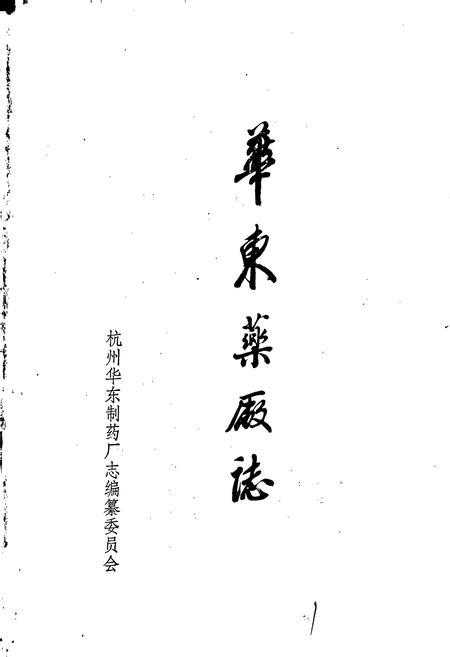 華東藥厰誌
杭州华东制药厂志编纂委员会